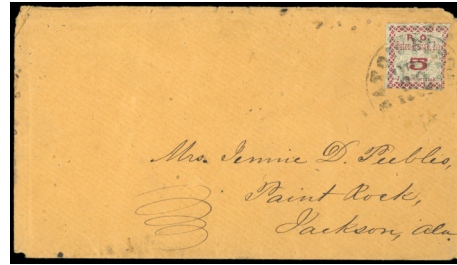 P. O.
5
Mrs. Jennie D. Peebles,
Paint Rock,
Jackson, Ala.